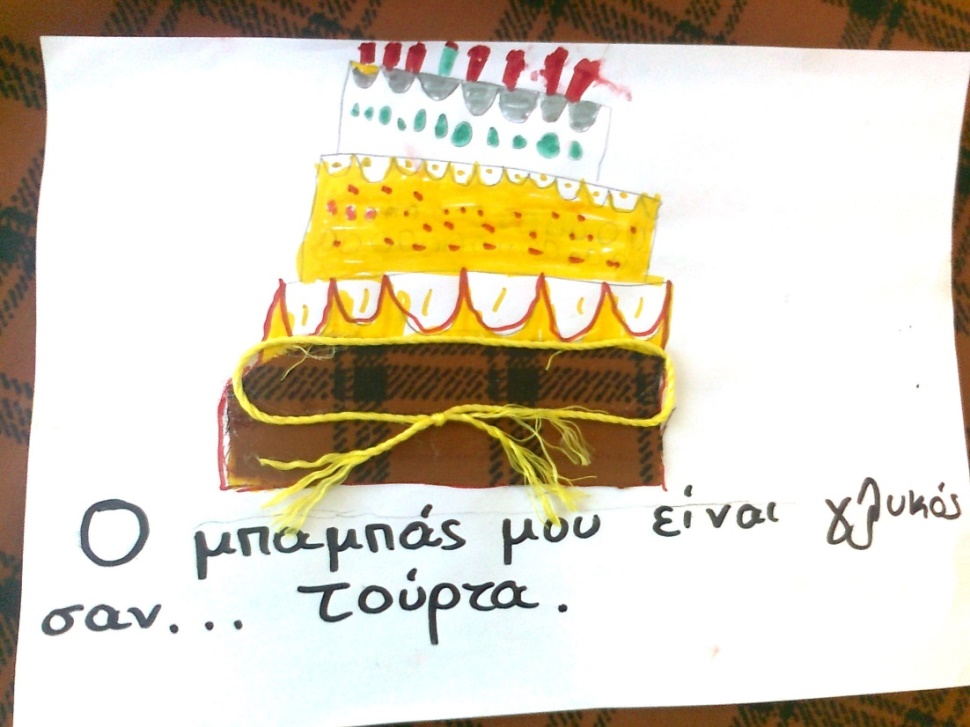 Ο μπαμπάς μου είναι γλυκός
σαν... τούρτα.